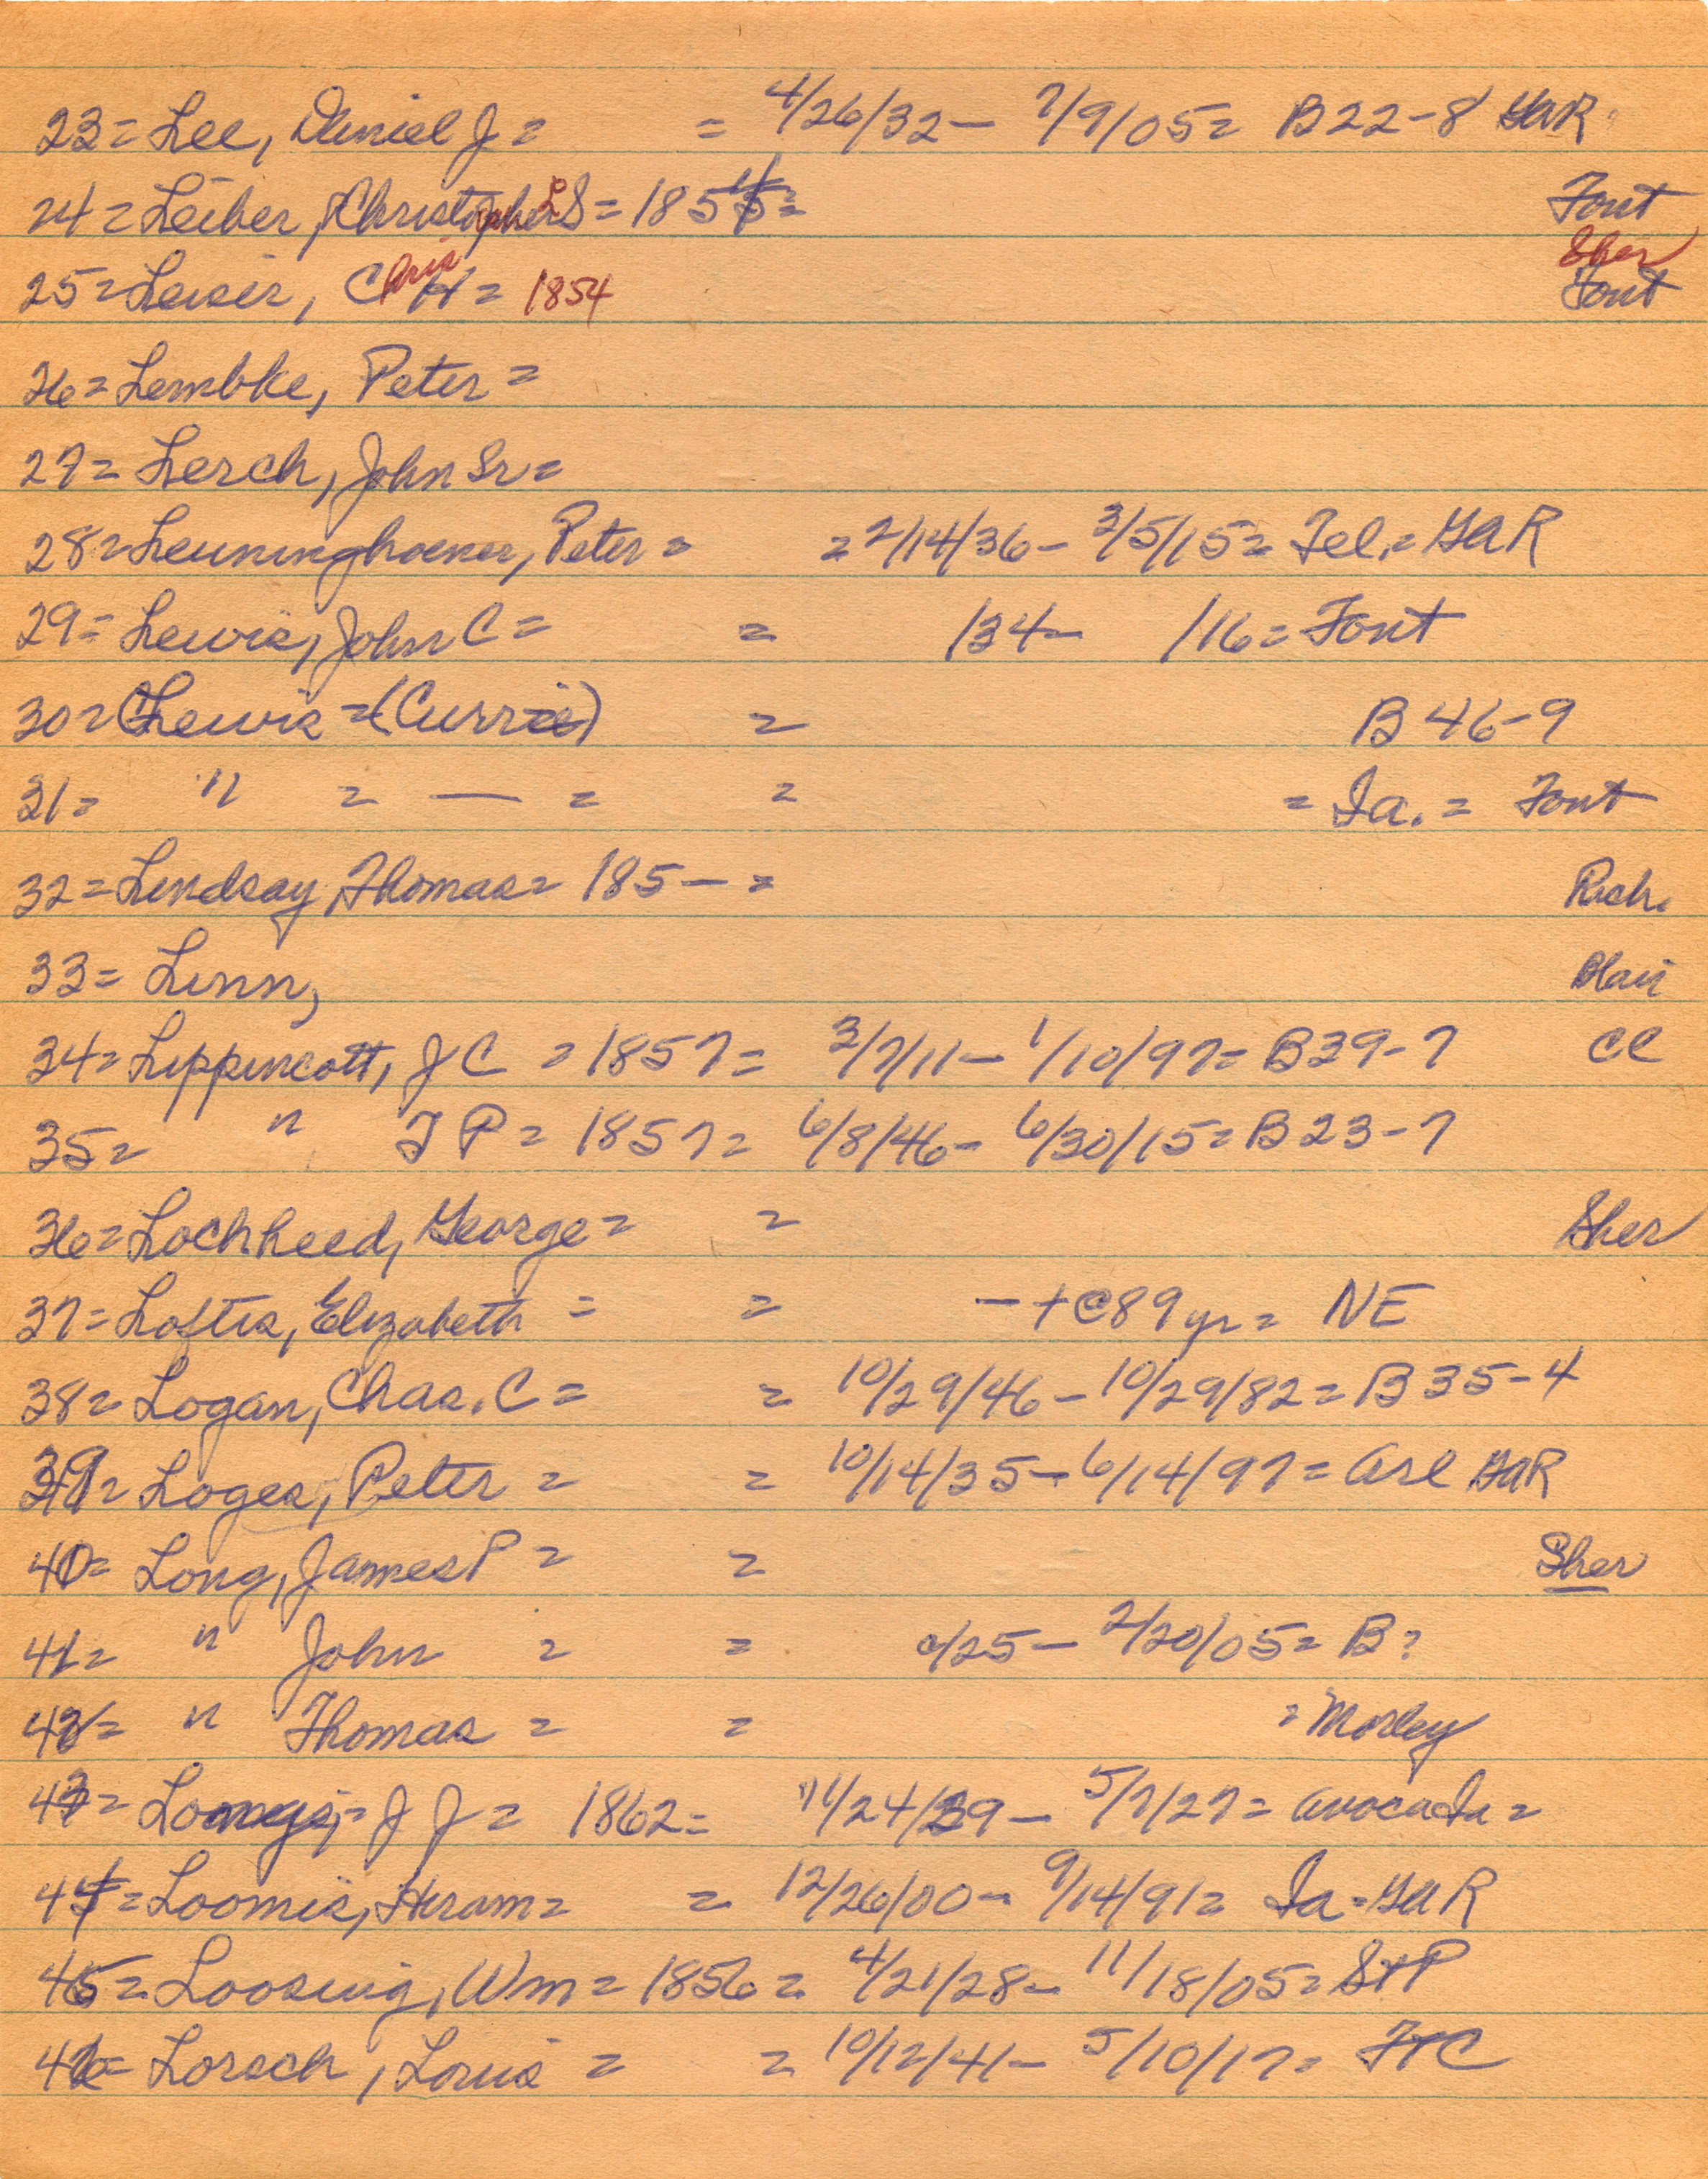 23= Lee, Daniel J = = 4/26/32 - 7/9/05= B22-8 GAR
24= Leiber, Christopher S = 185 = Font
Sher
25= Leisir, C H = 1854 Font
26= Lembke, Peter =
27= Lerch, John Sr =
28= Leuninghoener, Peter = = 2/14/36 - 3/5/15= Tel.= GAR
29= Lewis, John C = = /34- /16= Font
30= Lewis =(Currie) = B 46-9
31= " = — = = = Ia. = Font
32= Lindsay, Thomas= 185- = Rich.
33= Linn, Blair
34= Lippincott, J C = 1857= 3/7/11- 1/10/97= B39-7 CC
35= " T P = 1857= 6/8/46- 6/30/15= B23-7
36= Lochheed, George = = Sher
37= Loftis, Elizabeth = = - + @89 yr = NE
38= Logan, Chas. C = = 10/29/46 - 10/29/82= B35-4
39= Loges, Peter = = 10/14/35- 6/14/97= Arl GAR
40= Long, James P = = Sher
41= " John = = c/25- 2/20/05= B?
42= " Thomas = = = Morley
43= J J = 1862= 11/24/39 - 5/7/27= Avoca Ia =
44= Loomis, Hiram= = 12/26/00- 9/14/91= Ia = GAR
45= Loosing, Wm = 1856= 4/21/28- 11/18/05= StP
46= Lorsch, Louis = = 10/12/41- 5/10/17= FtC